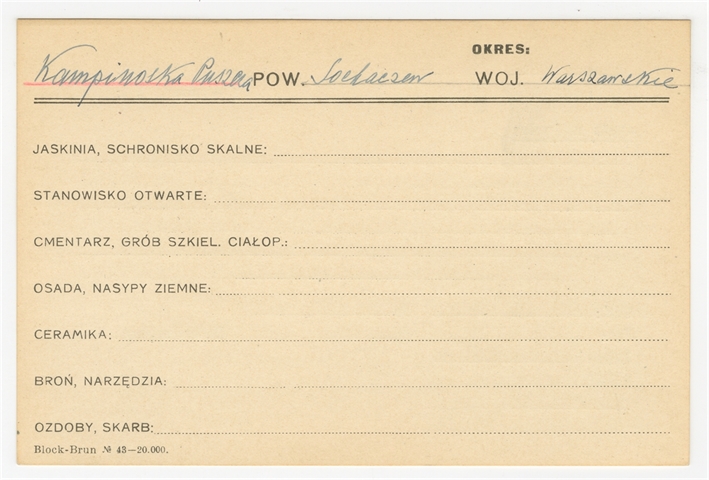 OKRES:
Kampinoska Puszcza POW. Sochaczew WOJ. Warszawskie
JASKINIA, SCHRONISKO SKALNE:
STANOWISKO OTWARTE:
CMENTARZ, GRÓB SZKIEL. CIAŁOP.:
OSADA, NASYPY ZIEMNE:
CERAMIKA:
BROŃ, NARZĘDZIA:
OZDOBY, SKARB:
Block-Brun № 43—20.000.